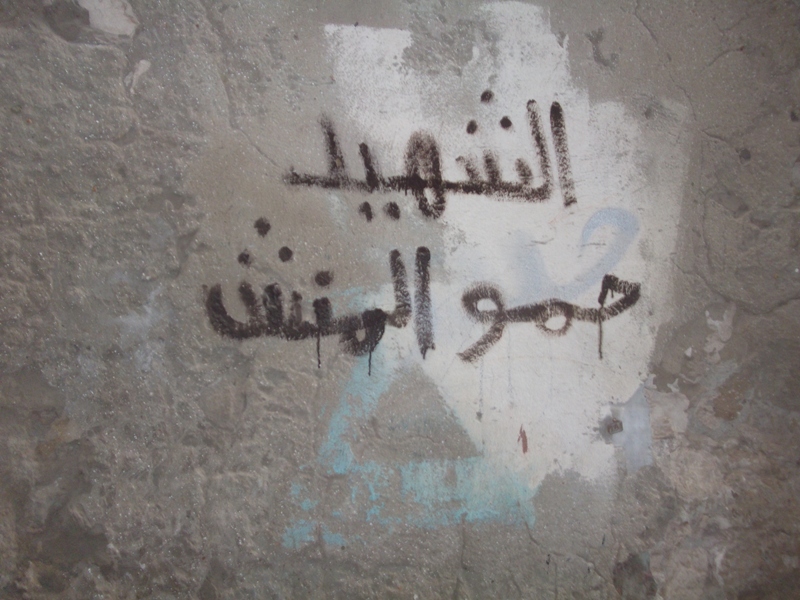 الشهيد
حمو المنش